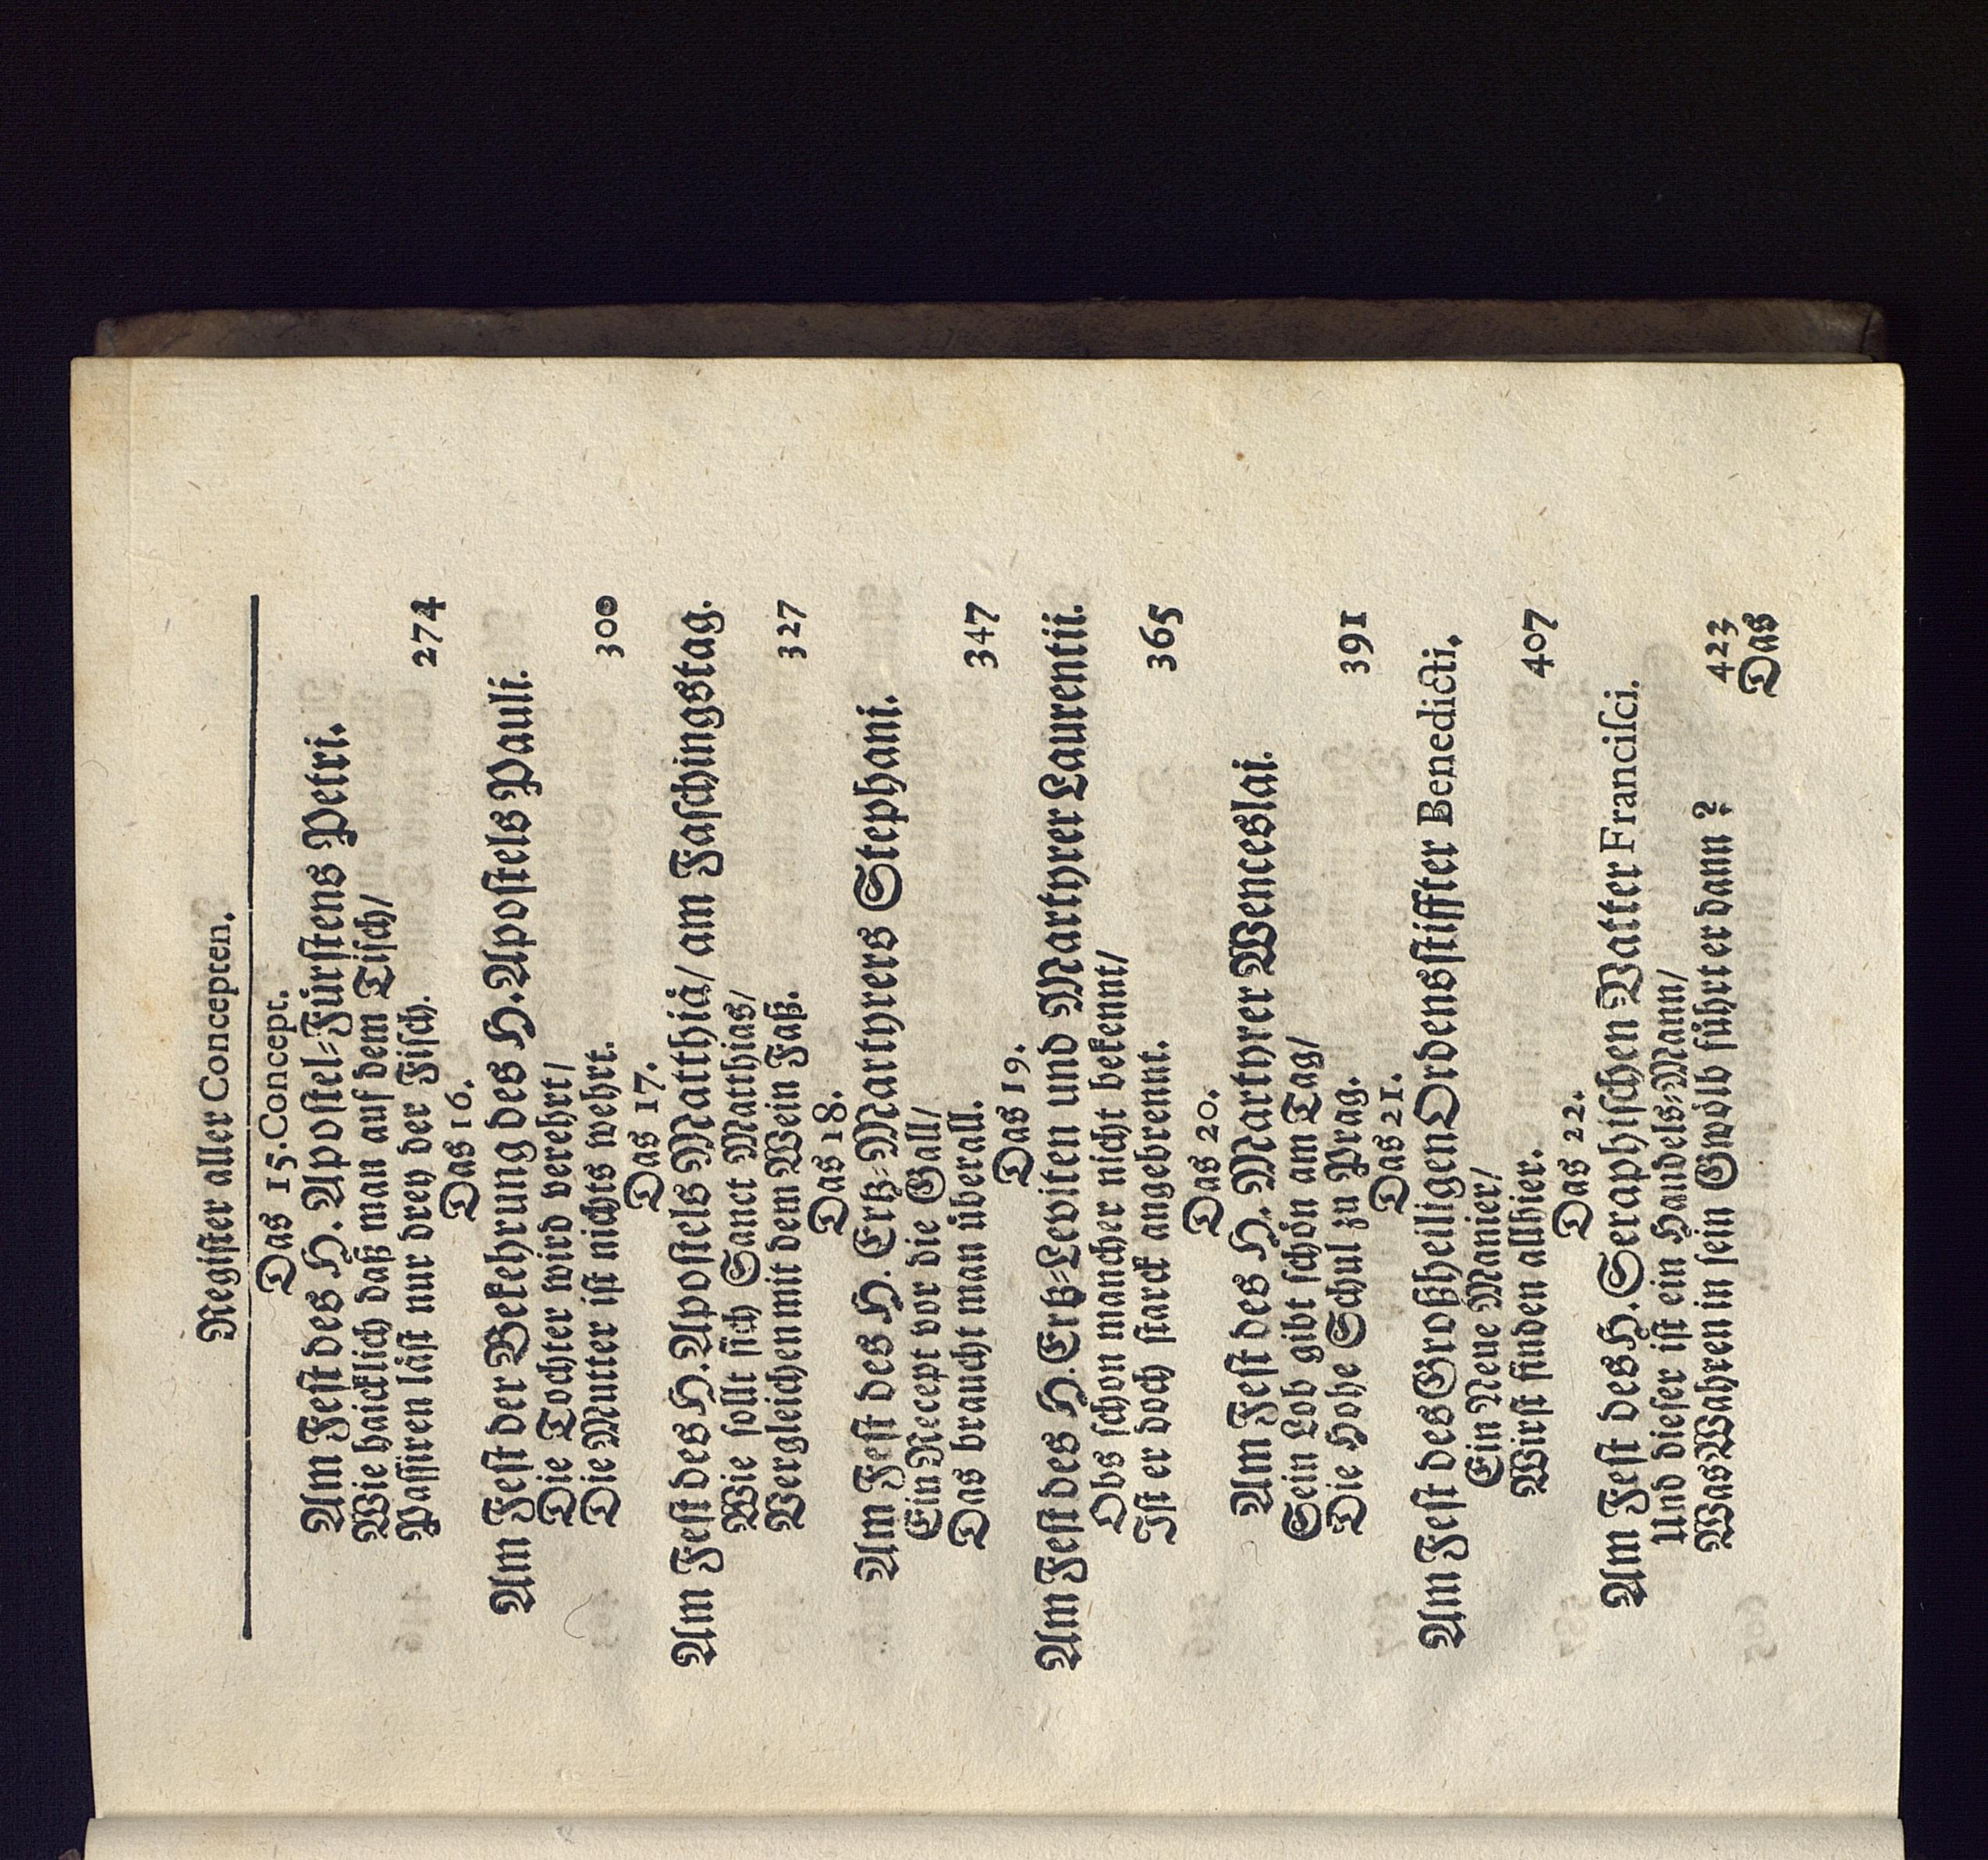 Register aller Concepten.
Das 15. Concept.
Am Fest des H. Apostel-Fürstens Petri.
Wie haicklich daß man auf dem Tisch/
Passiren läst nur drey der Fisch. 274
Das 16.
Am Fest der Bekehrung des H. Apostels Pauli.
Die Tochter wird verehrt/
Die Mutter ist nichts wehrt. 300
Das 17.
Am Fest des H. Apostels Matthiä/ am Faschingstag.
Wie sollt sich Sanct Matthias/
Vergleichen mit dem Wein Faß. 327
Das 18.
Am Fest des H. Ertz-Martyrers Stephani.
Ein Recept vor die Gall/
Das braucht man überall. 347
Das 19.
Am Fest des H. Ertz-Leviten und Martyrer Laurentii.
Obs schon mancher nicht bekennt/
Ist er doch starck angebrennt. 365
Das 20.
Am Fest des H. Martyrer Wenceslai.
Sein Lob gibt schön am Tag/
Die Hohe Schul zu Prag. 391
Das 21.
Am Fest des Großheiligen Ordensstiffter Benedicti.
Ein Neue Manier/
Wirst finden allhier. 407
Das 22.
Am Fest des H. Seraphischen Vatter Francisci.
Und dieser ist ein Handels-Mann/
Was Wahren in sein Gwölb führt er dann? 423
Das